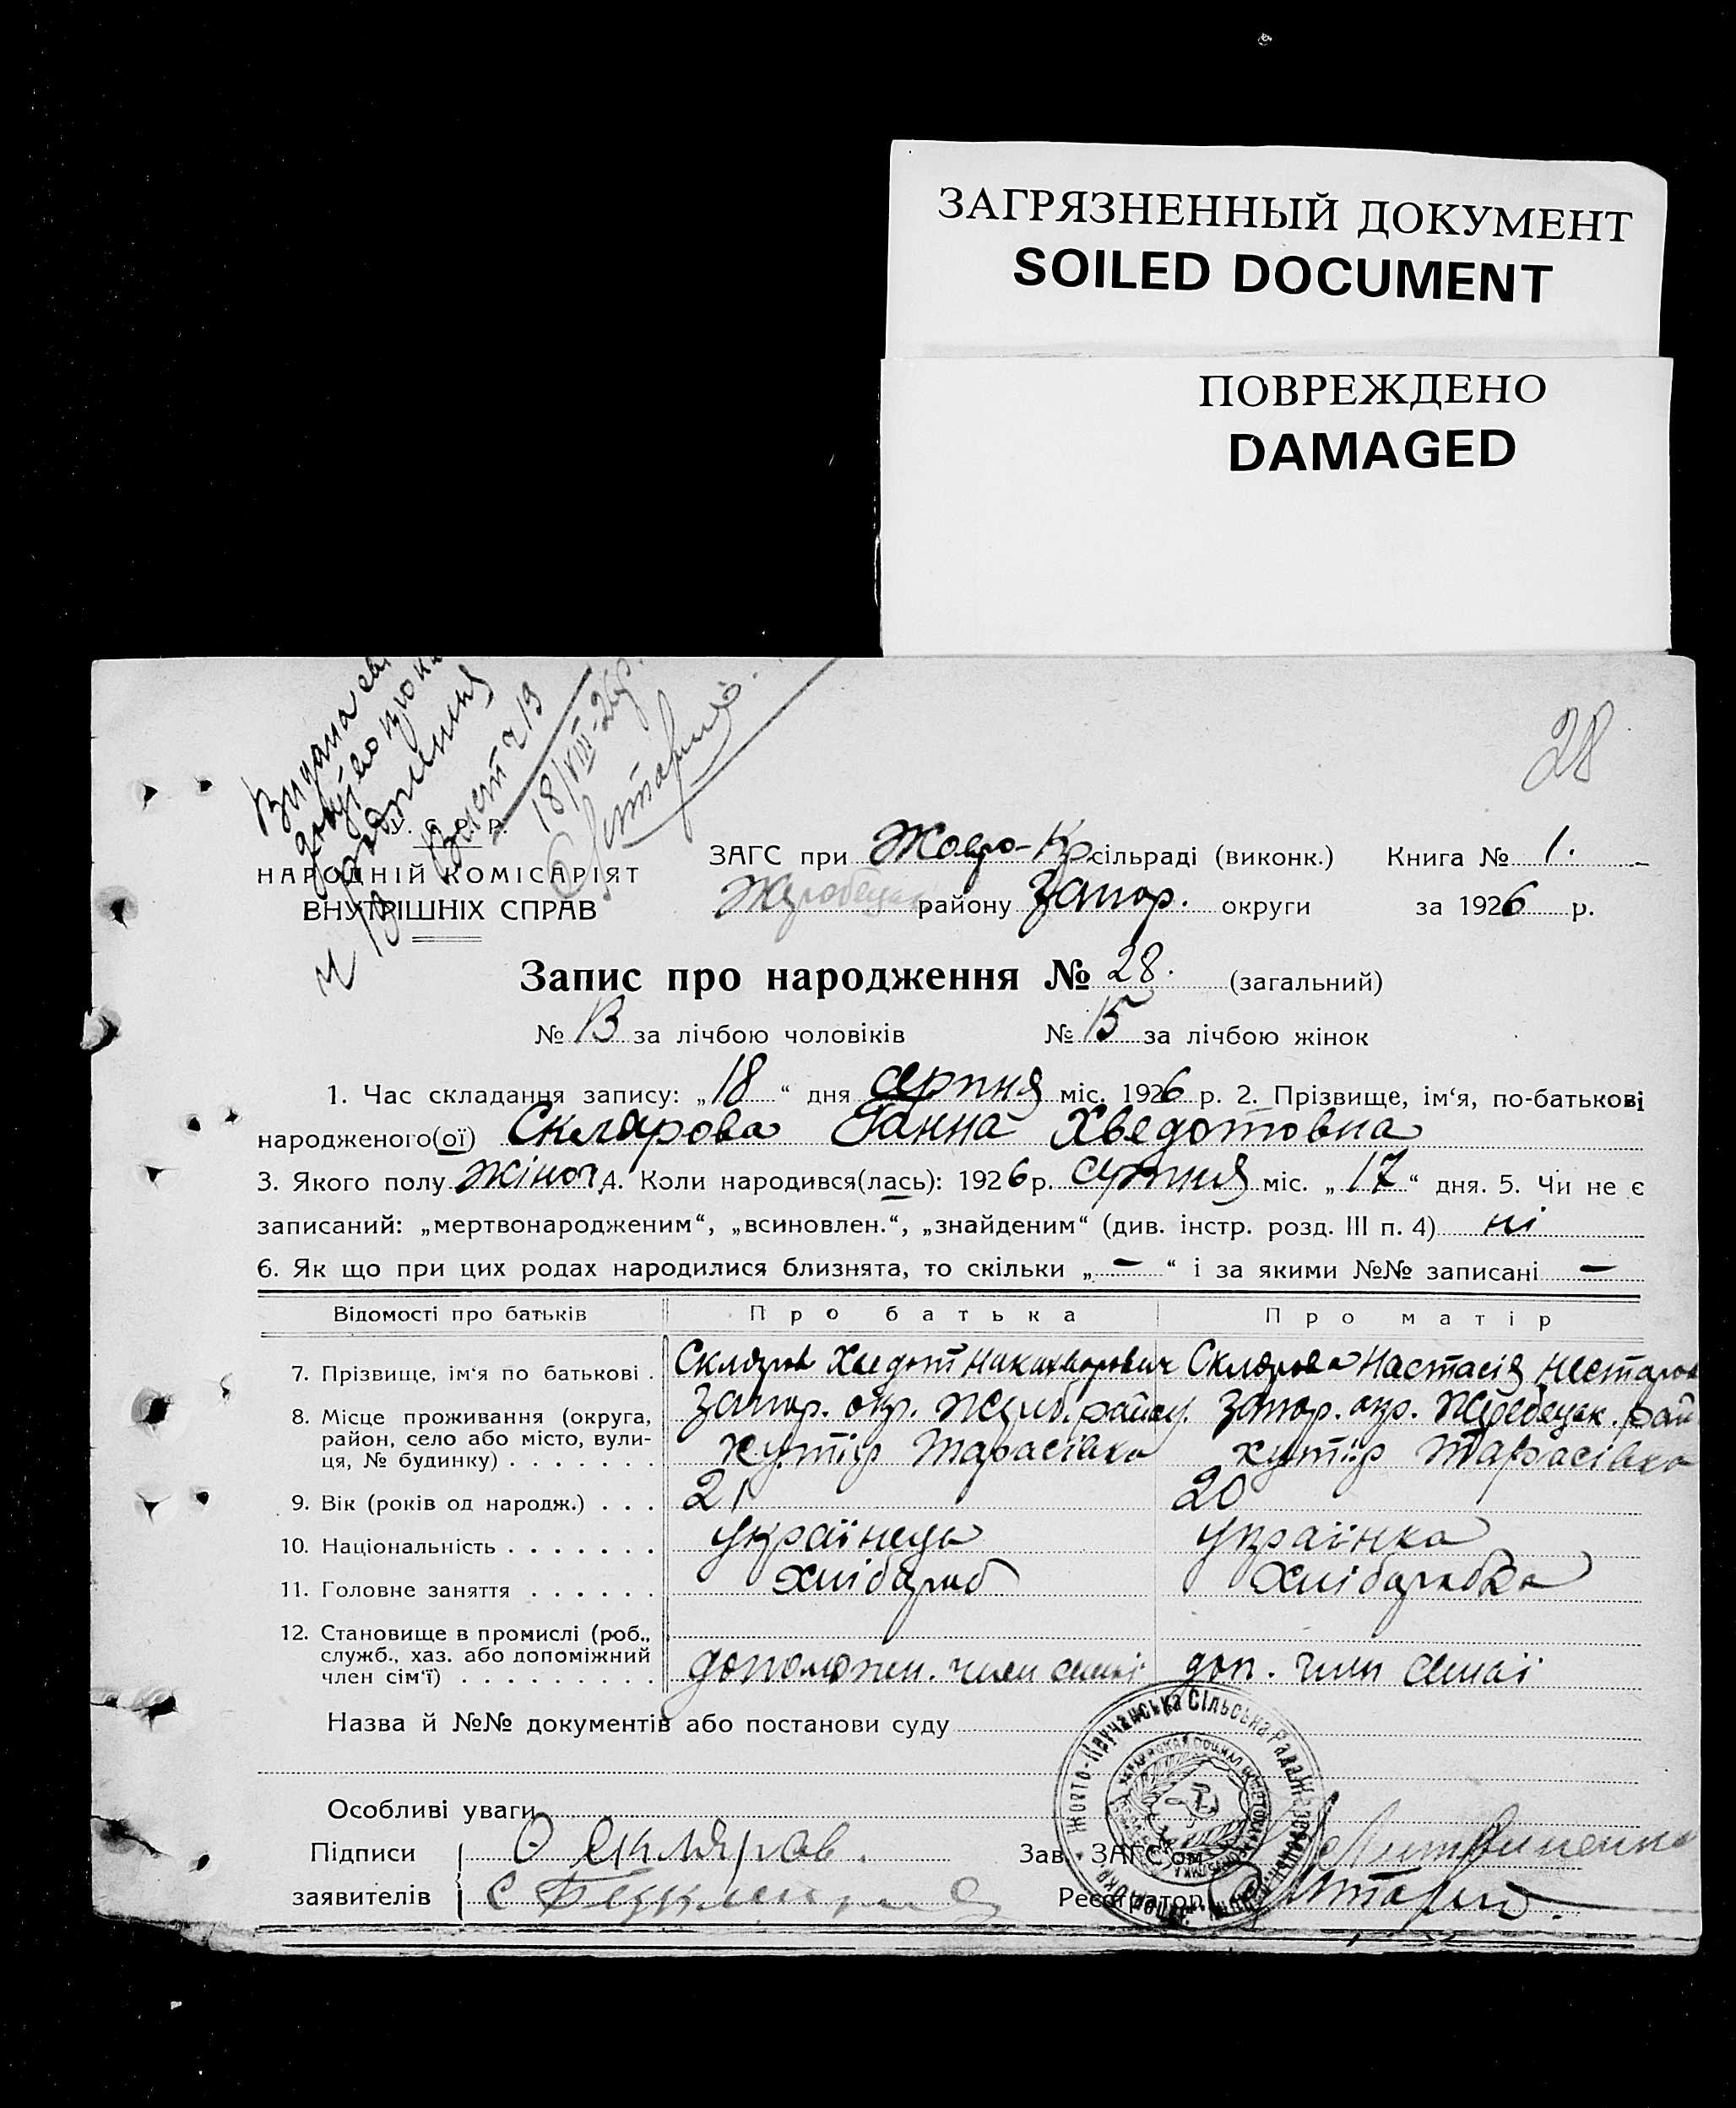 ЗАГРЯЗНЕННЫЙ ДОКУМЕНТ
SOILED DOCUMENT
ПОВРЕЖДЕНО
DAMAGED
28
Видана
18/VIII-26р.
У. С. Р. Р.
НАРОДНІЙ КОМІСАРІЯТ
ВНУТРІШНІХ СПРАВ
ЗАГС при Жовто-Кр. сільраді (виконк.) Книга № 1.
району Запор. округи за 1926 р.
Запис про народження № 28. (загальний)
№ 13 за лічбою чоловіків № 15 за лічбою жінок
1. Час складання запису: „18“ дня серпня міс. 1926 р. 2. Прізвище, ім‘я, по-батькові
народженого(ої) Склярова Ганна Хведотовна
3. Якого полу жіноч. 4. Коли народився(лась): 1926 р. серпня міс. „17“ дня. 5. Чи не є
записаний: „мертвонародженим“, „всиновлен.“, „знайденим“ (див. інстр. розд. III п. 4) ні
6. Як що при цих родах народилися близнята, то скільки „—“ і за якими №№ записані —
Відомості про батьків Про батька Про матір
7. Прізвище, ім‘я по батькові . Скляров Хведот Никахворович Склярова Настасія Нестаров
8. Місце проживання (округа, Запор. окр. Жереб. району. Запор. окр. Жеребецьк. рай
район, село або місто, вули- хутір Тарасівка хутір Тарасівка
ця, № будинку) . . . . . . .
9. Вік (років од народж.) . . . 21 20
10. Національність . . . . . . . українець українка
11. Головне заняття . . . . . . хлібороб хліборобка
12. Становище в промислі (роб.,
служб., хаз. або допоміжний допоможн. член семьї доп. член семьї
член сім‘ї) . . . . . . . . .
Назва й №№ документів або постанови суду
Жовто-Кручанська Сільська Рада
Особливі уваги
Підписи Ө Скляров.
заявителів
Зав. ЗАГС‘ом
Реєстратор